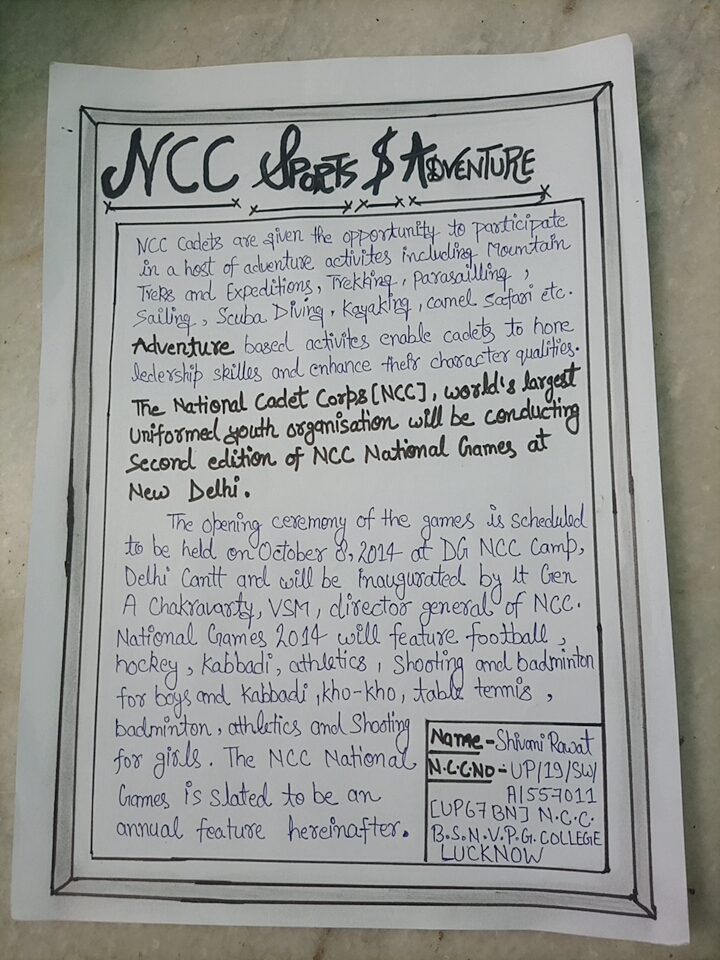 NCC Sports $ Adventure
NCC Cadets are given the opportunity to participate
in a host of adventure activites including Mountain
Treks and Expeditions, Trekking, parasailling,
Sailing, Scuba Diving, Kayaking, camel Safari etc.
Adventure based activites enable cadets to hone
ledership skilles and enhance their character qualities.
The National Cadet Corps [NCC], world's largest
Uniformed youth organisation will be conducting
Second edition of NCC National Games at
New Delhi.
The opening ceremony of the games is scheduled
to be held on October 8, 2014 at DG NCC Camp,
Delhi Cantt and will be inaugurated by lt Gen
A Chakravarty, VSM, director general of NCC.
National Games 2014 will feature football,
hockey, Kabbadi, athletics, Shooting and badminton
for boys and Kabbadi, kho-kho, table tennis,
badminton, athletics and Shooting
for girls. The NCC National
Games is slated to be an
annual feature hereinafter.
Name - Shivani Rawat
N.C.C.NO - UP/19/SW/
A1557011
[UP67 BN] N.C.C.
B.S.N.V.P.G. COLLEGE
LUCKNOW